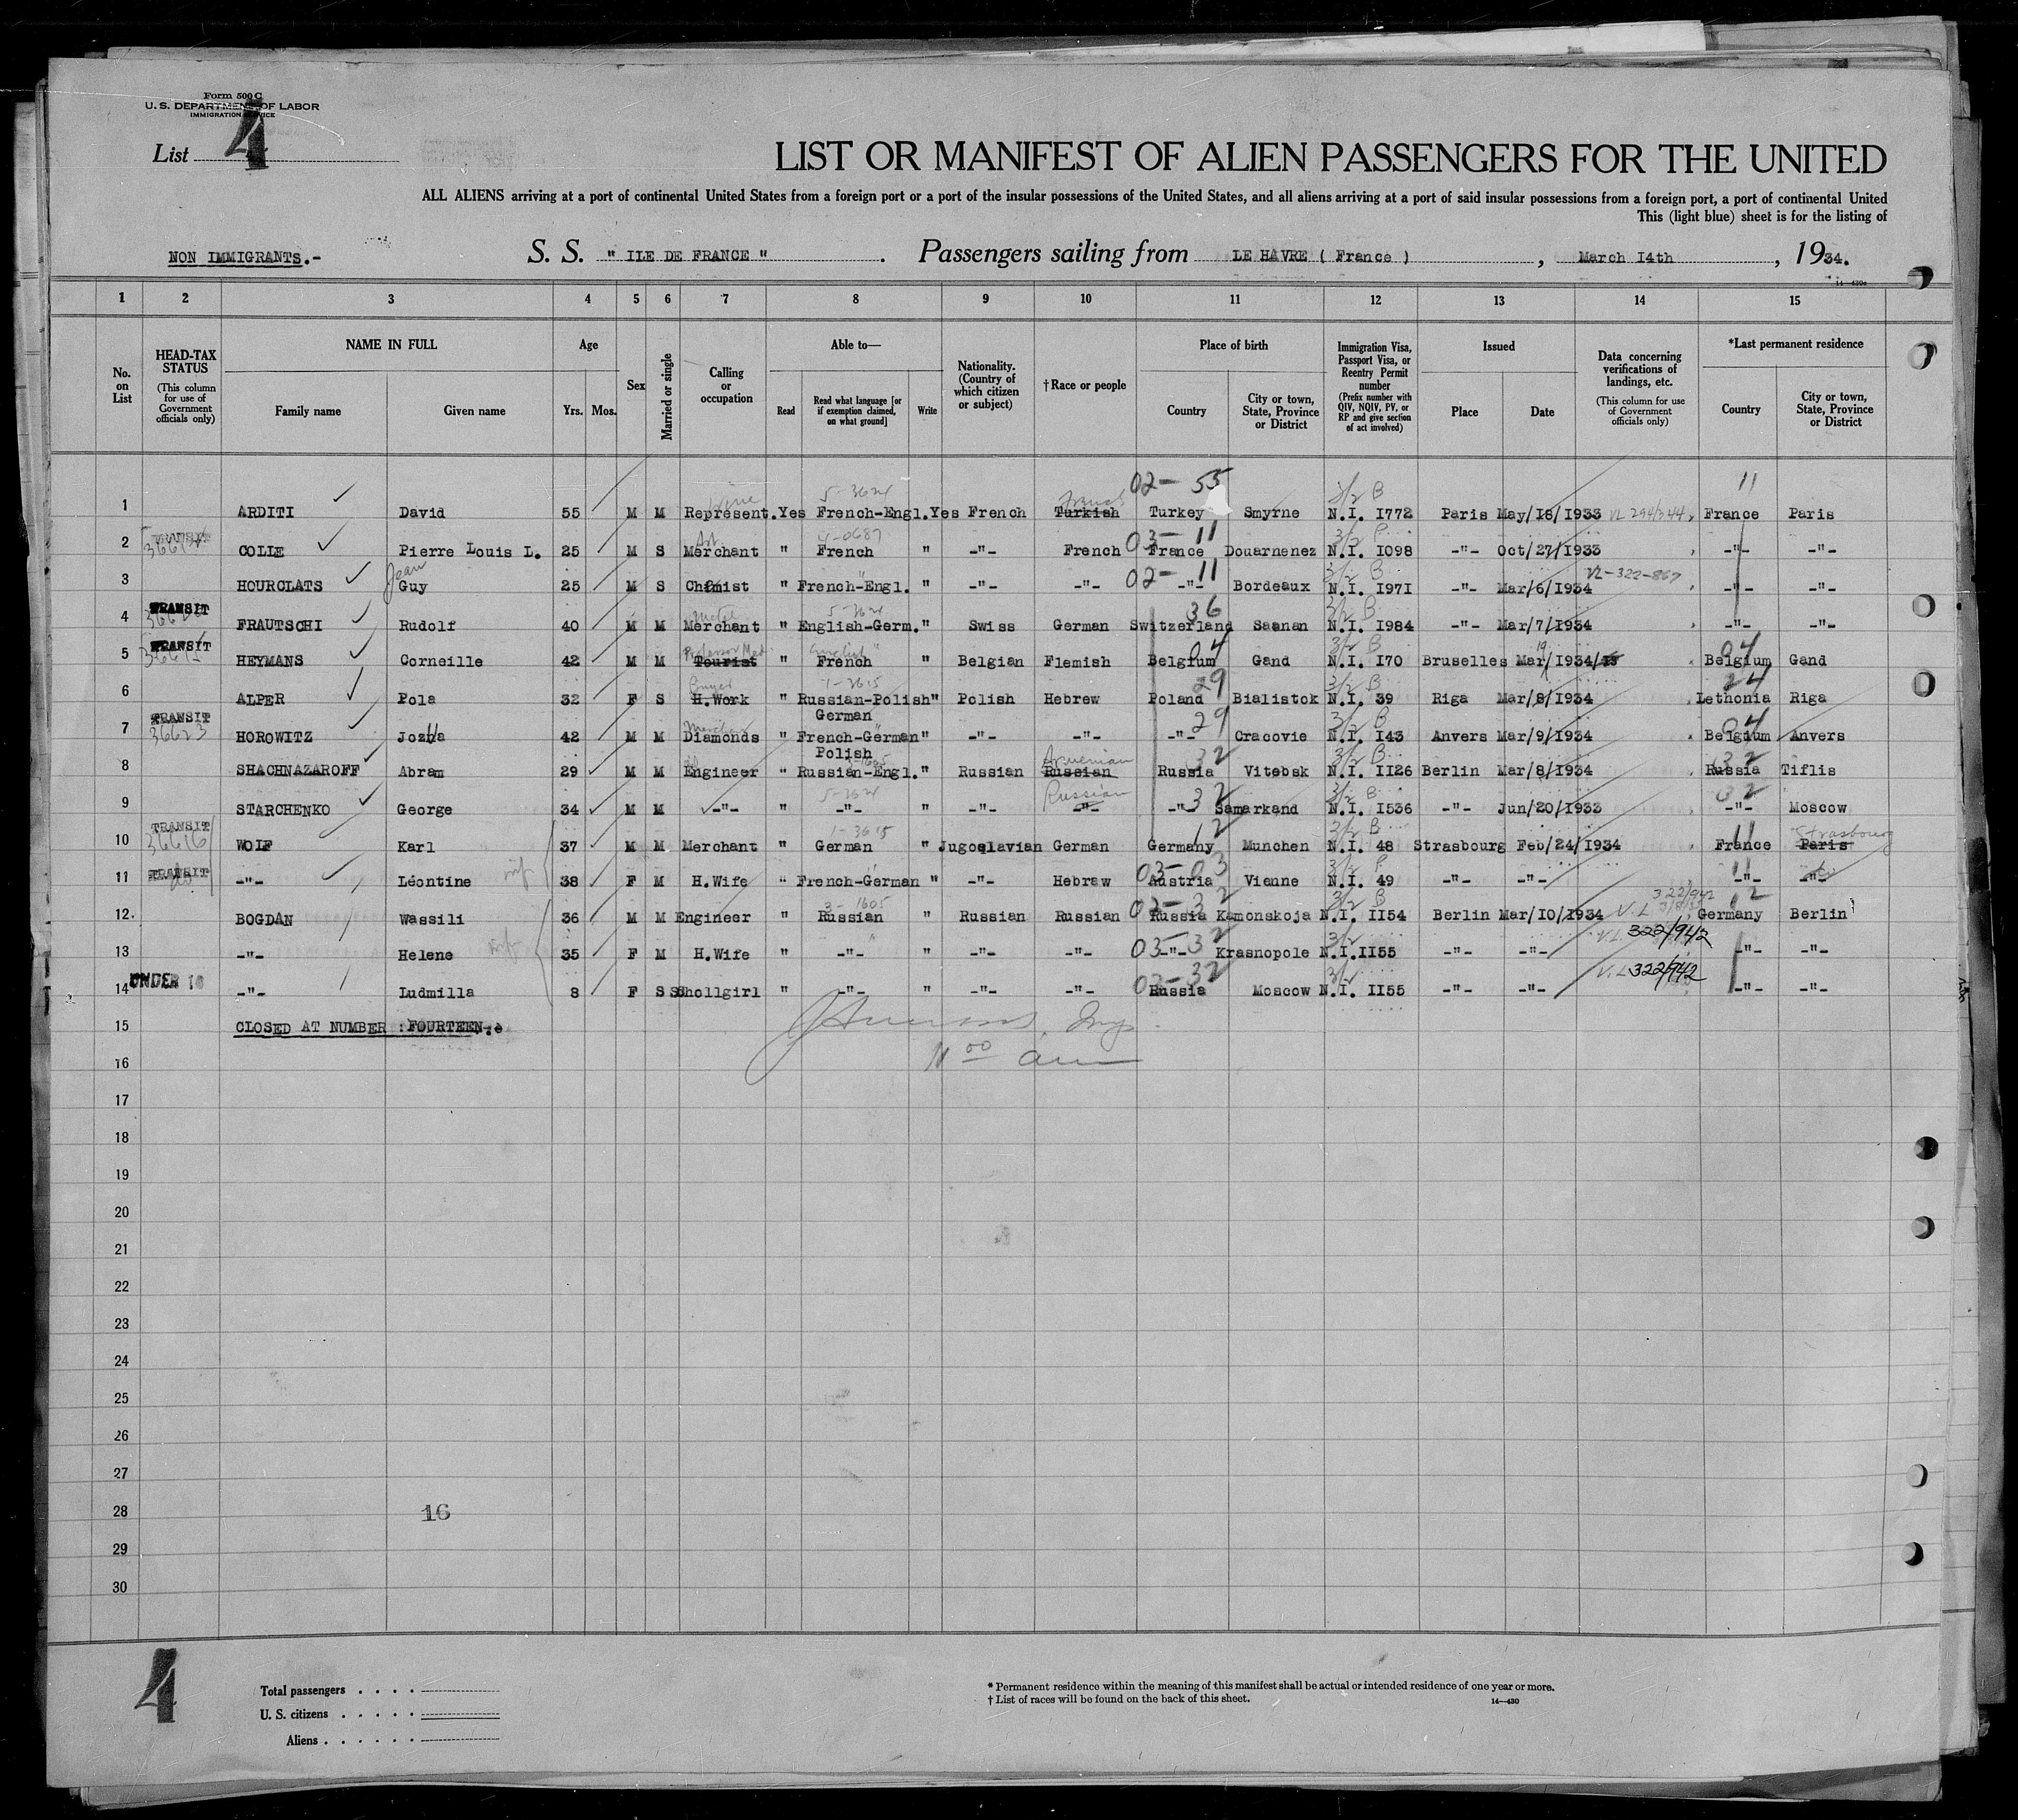 Form 500 C
U. S. DEPARTMENT OF LABOR
IMMIGRATION SERVICE
List 4
LIST OR MANIFEST OF ALIEN PASSENGERS FOR THE UNITED
ALL ALIENS arriving at a port of continental United States from a foreign port or a port of the insular possessions of the United States, and all aliens arriving at a port of said insular possessions from a foreign port, a port of continental United
This (light blue) sheet is for the listing of
NON IMMIGRANTS.- S. S. " ILE DE FRANCE " . Passengers sailing from LE HAVRE ( France ) , March I4th , 1934.
14—430c
1 2 3 4 5 6 7 8 9 10 11 12 13 14 15
No. on List
HEAD-TAX STATUS (This column for use of Government officials only)
NAME IN FULL Family name Given name
Age Yrs. Mos.
Sex
Married or single
Calling or occupation
Able to— Read Read what language [or if exemption claimed, on what ground] Write
Nationality. (Country of which citizen or subject)
† Race or people
Place of birth Country City or town, State, Province or District
Immigration Visa, Passport Visa, or Reentry Permit number (Prefix number with QIV, NQIV, PV, or RP and give section of act involved)
Issued Place Date
Data concerning verifications of landings, etc. (This column for use of Government officials only)
*Last permanent residence Country City or town, State, Province or District
02- 55 3/2 B 11
5-3624 French
1 ARDITI David 55 M M Represent. Yes French-Engl. Yes French Turkish Turkey Smyrne N.I. I772 Paris May/I8/I933 VL 294/344 France Paris
TRANSIT Art 4-0687 03- 11 3/2 P
2 COLLE Pierre Louis L. 25 M S Merchant " French " -"- French France Douarnenez N.I. I098 -"- Oct/27/I933 -"- -"-
Jean 02- 11 3/2 B VL-322-867
3 HOURCLATS Guy 25 M S Chemist " French-Engl. " -"- -"- -"- Bordeaux N.I. I971 -"- Mar/6/I934 -"- -"-
TRANSIT 5-3624 36 3/2 B
4 FRAUTSCHI Rudolf 40 M M Merchant " English-Germ. " Swiss German Switzerland Saanan N.I. I984 -"- Mar/7/I934 -"- -"-
TRANSIT Professor Med. English 04 3/2 B 04
5 HEYMANS Corneille 42 M M Tourist " French " Belgian Flemish Belgium Gand N.I. I70 Bruselles Mar/I934/I9 Belgium Gand
Buyer 1-3615 29 3/2 B 24
6 ALPER Pola 32 F S H.Work " Russian-Polish " Polish Hebrew Poland Bialistok N.I. 39 Riga Mar/8/I934 Lethonia Riga
German
TRANSIT 36623 29 3/2 B 04
7 HOROWITZ Jozua 42 M M Diamonds " French-German " -"- -"- -"- Cracovie N.I. I43 Anvers Mar/9/I934 Belgium Anvers
Polish
Armenian 32 3/2 B 32
8 SHACHNAZAROFF Abram 29 M M Engineer " Russian-Engl. " Russian Russian Russia Vitebsk N.I. II26 Berlin Mar/8/I934 Russia Tiflis
5-3624 Russian 32 3/2 B 32
9 STARCHENKO George 34 M M -"- " -"- " -"- -"- -"- Samarkand N.I. I536 -"- Jun/20/I933 -"- Moscow
TRANSIT 36616 1-3615 12 3/2 B 11 Strasbourg
10 WOLF Karl 37 M M Merchant " German " Jugoslavian German Germany Munchen N.I. 48 Strasbourg Feb/24/I934 France Paris
TRANSIT wife 03-03 3/2 P 11
11 -"- Léontine 38 F M H.Wife " French-German " -"- Hebraw Austria Vienne N.I. 49 -"- -"- -"- -"-
3-1605 02-32 3/2 B V.L 322/942 12
12. BOGDAN Wassili 36 M M Engineer " Russian " Russian Russian Russia Kamonskoja N.I. II54 Berlin Mar/I0/I934 Germany Berlin
wife 03-32 3/2 V.L. 322/942
13 -"- Helene 35 F M H.Wife " -"- " -"- -"- -"- Krasnopole N.I.II55 -"- -"- -"- -"-
UNDER 16 02-32 3/2 V.L 322/942
14 -"- Ludmilla 8 F S Shollgirl " -"- " -"- -"- Russia Moscow N.I. II55 -"- -"- -"- -"-
15 CLOSED AT NUMBER : FOURTEEN.
16 11 00 am
17
18
19
20
21
22
23
24
25
26
27
28 16
29
30
4
Total passengers
U. S. citizens
Aliens
* Permanent residence within the meaning of this manifest shall be actual or intended residence of one year or more.
† List of races will be found on the back of this sheet.
14—430